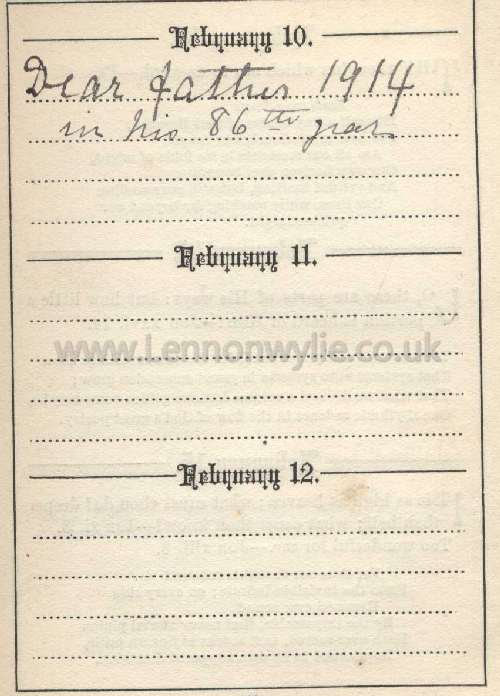 February 10.
Dear father 1914
in his 86th year
February 11.
www.Lennonwylie.co.uk
February 12.